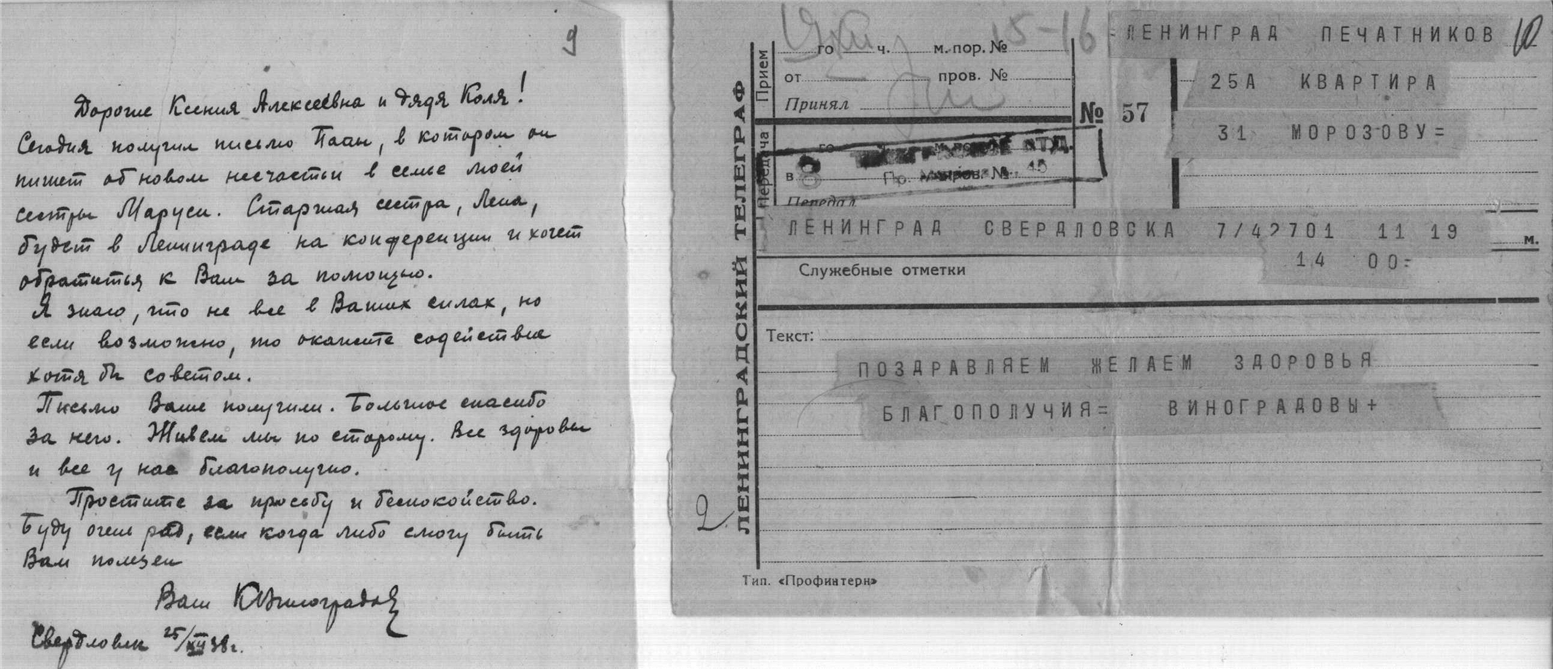 9
Дорогие Ксения Алексеевна и дядя Коля!
Сегодня получил письмо Папы, в котором он
пишет об новом несчастьи в семье моей
сестры Маруси. Старшая сестра, Лена,
будет в Ленинграде на конференции и хочет
обратиться к Вам за помощью.
Я знаю, что не все в Ваших силах, но
если возможно, то окажите содействие
хотя бы советом.
Письмо Ваше получили. Большое спасибо
за него. Живем мы по старому. Все здоровы
и все у нас благополучно.
Простите за просьбу и беспокойство.
Буду очень рад, если когда либо смогу быть
Вам полезен
Ваш КВиноградов
Свердловск 25/XII 38г.
ЛЕНИНГРАДСКИЙ ТЕЛЕГРАФ
Прием
го ч. м. пор. №
15-16
от пров. №
Принял
№ 57
=ЛЕНИНГРАД ПЕЧАТНИКОВ
10
25А КВАРТИРА
31 МОРОЗОВУ=
Передача
го
в
Передал
ЛЕНИНГРАД СВЕРДЛОВСКА 7/42701 11 19
м.
14 00=
Служебные отметки
Текст:
ПОЗДРАВЛЯЕМ ЖЕЛАЕМ ЗДОРОВЬЯ
БЛАГОПОЛУЧИЯ= ВИНОГРАДОВЫ+
2
Тип. «Профинтерн»